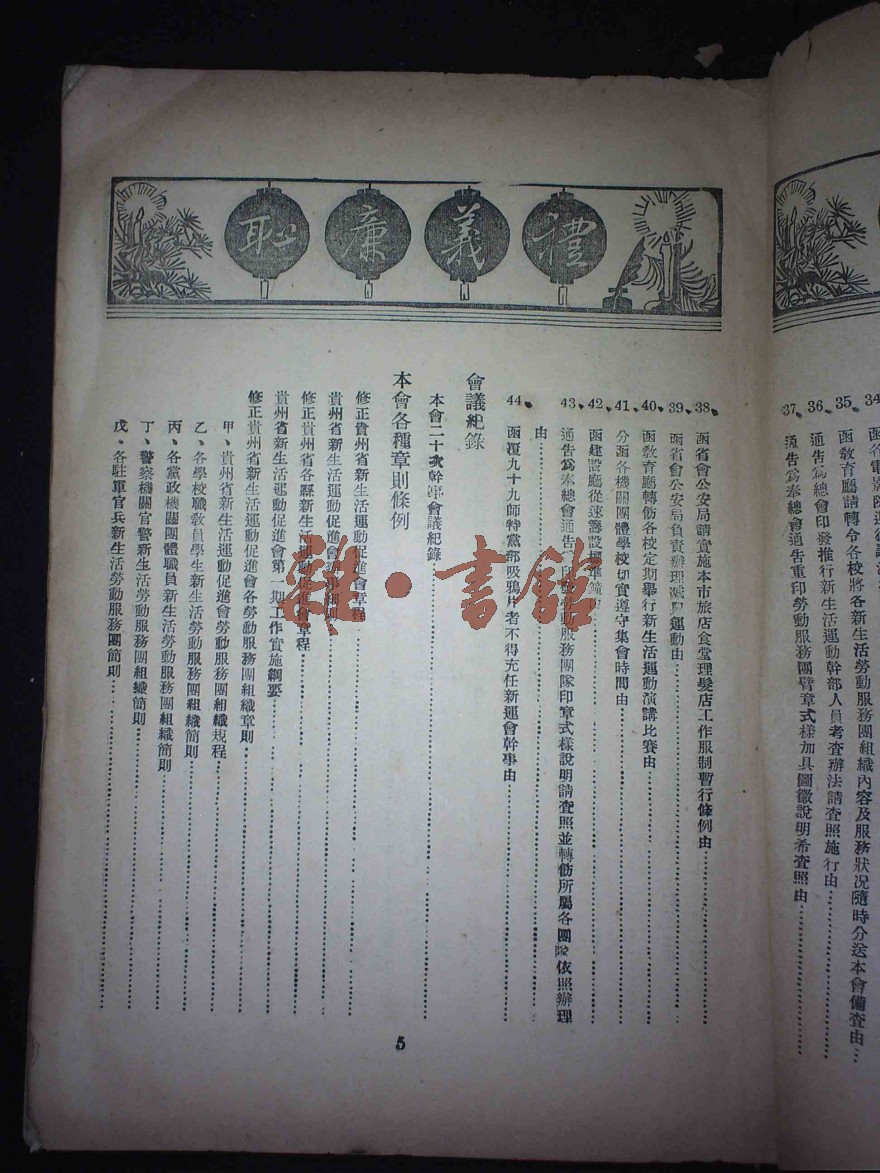 禮義廉恥
34、各電影院
35、函教育廳請轉令各校將各新生活勞動服務團組織內容及服務狀况隨時分送本會備查由
36、通告爲總會印發推行新生活運動幹部人員考查辦法請查照施行由
37、通告爲奉總會通告重印勞動服務團臂章式樣加具圖徽說明希查照由
38、函省會公安局請實施本市旅店食堂理髮店工作服制暫行條例由
39、函省會公安局負責辦理滅
運動由
40、函教育廳轉飭各校定期舉行新生活運動演講比賽由
41、分函各機關團體學校切實遵守集會時間由
42、函建設廳從速籌設標準鐘由
43、通告爲奉總會通告
印發勞動服務團隊印章式樣說明請查照並轉飭所屬各團隊依照辦理
由
44、函覆九十九師特黨部吸鴉片者不得充任新運會幹事由
會議紀錄
本會二十次幹事會議紀錄
本會各種章則條例
修正貴州省新生活運動促進會章程
貴州省新生活運動促進會
細則
修正貴州省各縣新生活運動促進會章程
貴州省新生活運動促進會第一期工作實施綱要
修正貴州省新生活運動促進會各勞動服務團組織章則
甲、貴州省新生活運動促進會勞動服務團組織規程
乙、各學校職教員學生新生活勞動服務團組織簡則
丙、各黨政機關團體職員新生活勞動服務團組織簡則
丁、警察機關官警新生活勞動服務團組織簡則
戊、各駐軍官兵新生活勞動服務團簡則
5
雜·書館